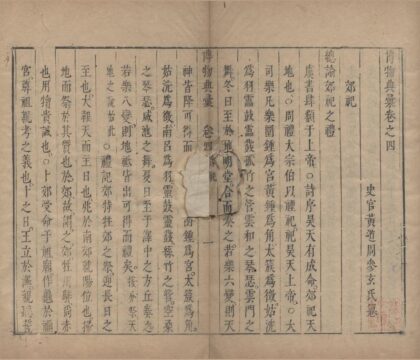 博物典彙卷之四
史官黃道周參玄氏纂
郊祀
總論郊祀之禮
虞書肆類于上帝○詩序昊天有成命郊祀天
地也○周禮大宗伯以禋祀祀昊天上帝○大
司樂凡樂圜鍾爲宮黃鍾爲角太簇爲徵姑洗
爲羽靈鼓靈鼗孤竹之管雲和之琴瑟雲門之
舞冬日至於地 而奏之若樂六變則天
博物典彙 卷四 一
神皆降可得而 函鍾爲宮太簇爲角
姑洗爲徵南呂爲羽靈鼓靈鼗孫竹之管空桑
之琴瑟咸池之舞夏日至于澤中之方丘奏之
若樂八變則地祗皆出可得而禮矣
之始此○禮記郊特牲郊之祭也迎長日之
至也大報天而主日也兆於南郊就陽位也掃
地而祭於其質也於郊故謂之郊牲用騂尚赤
也用犢貴誠也○卜郊受命于祖廟作龜于禰
宮尊祖親考之義也卜之日王立於澤